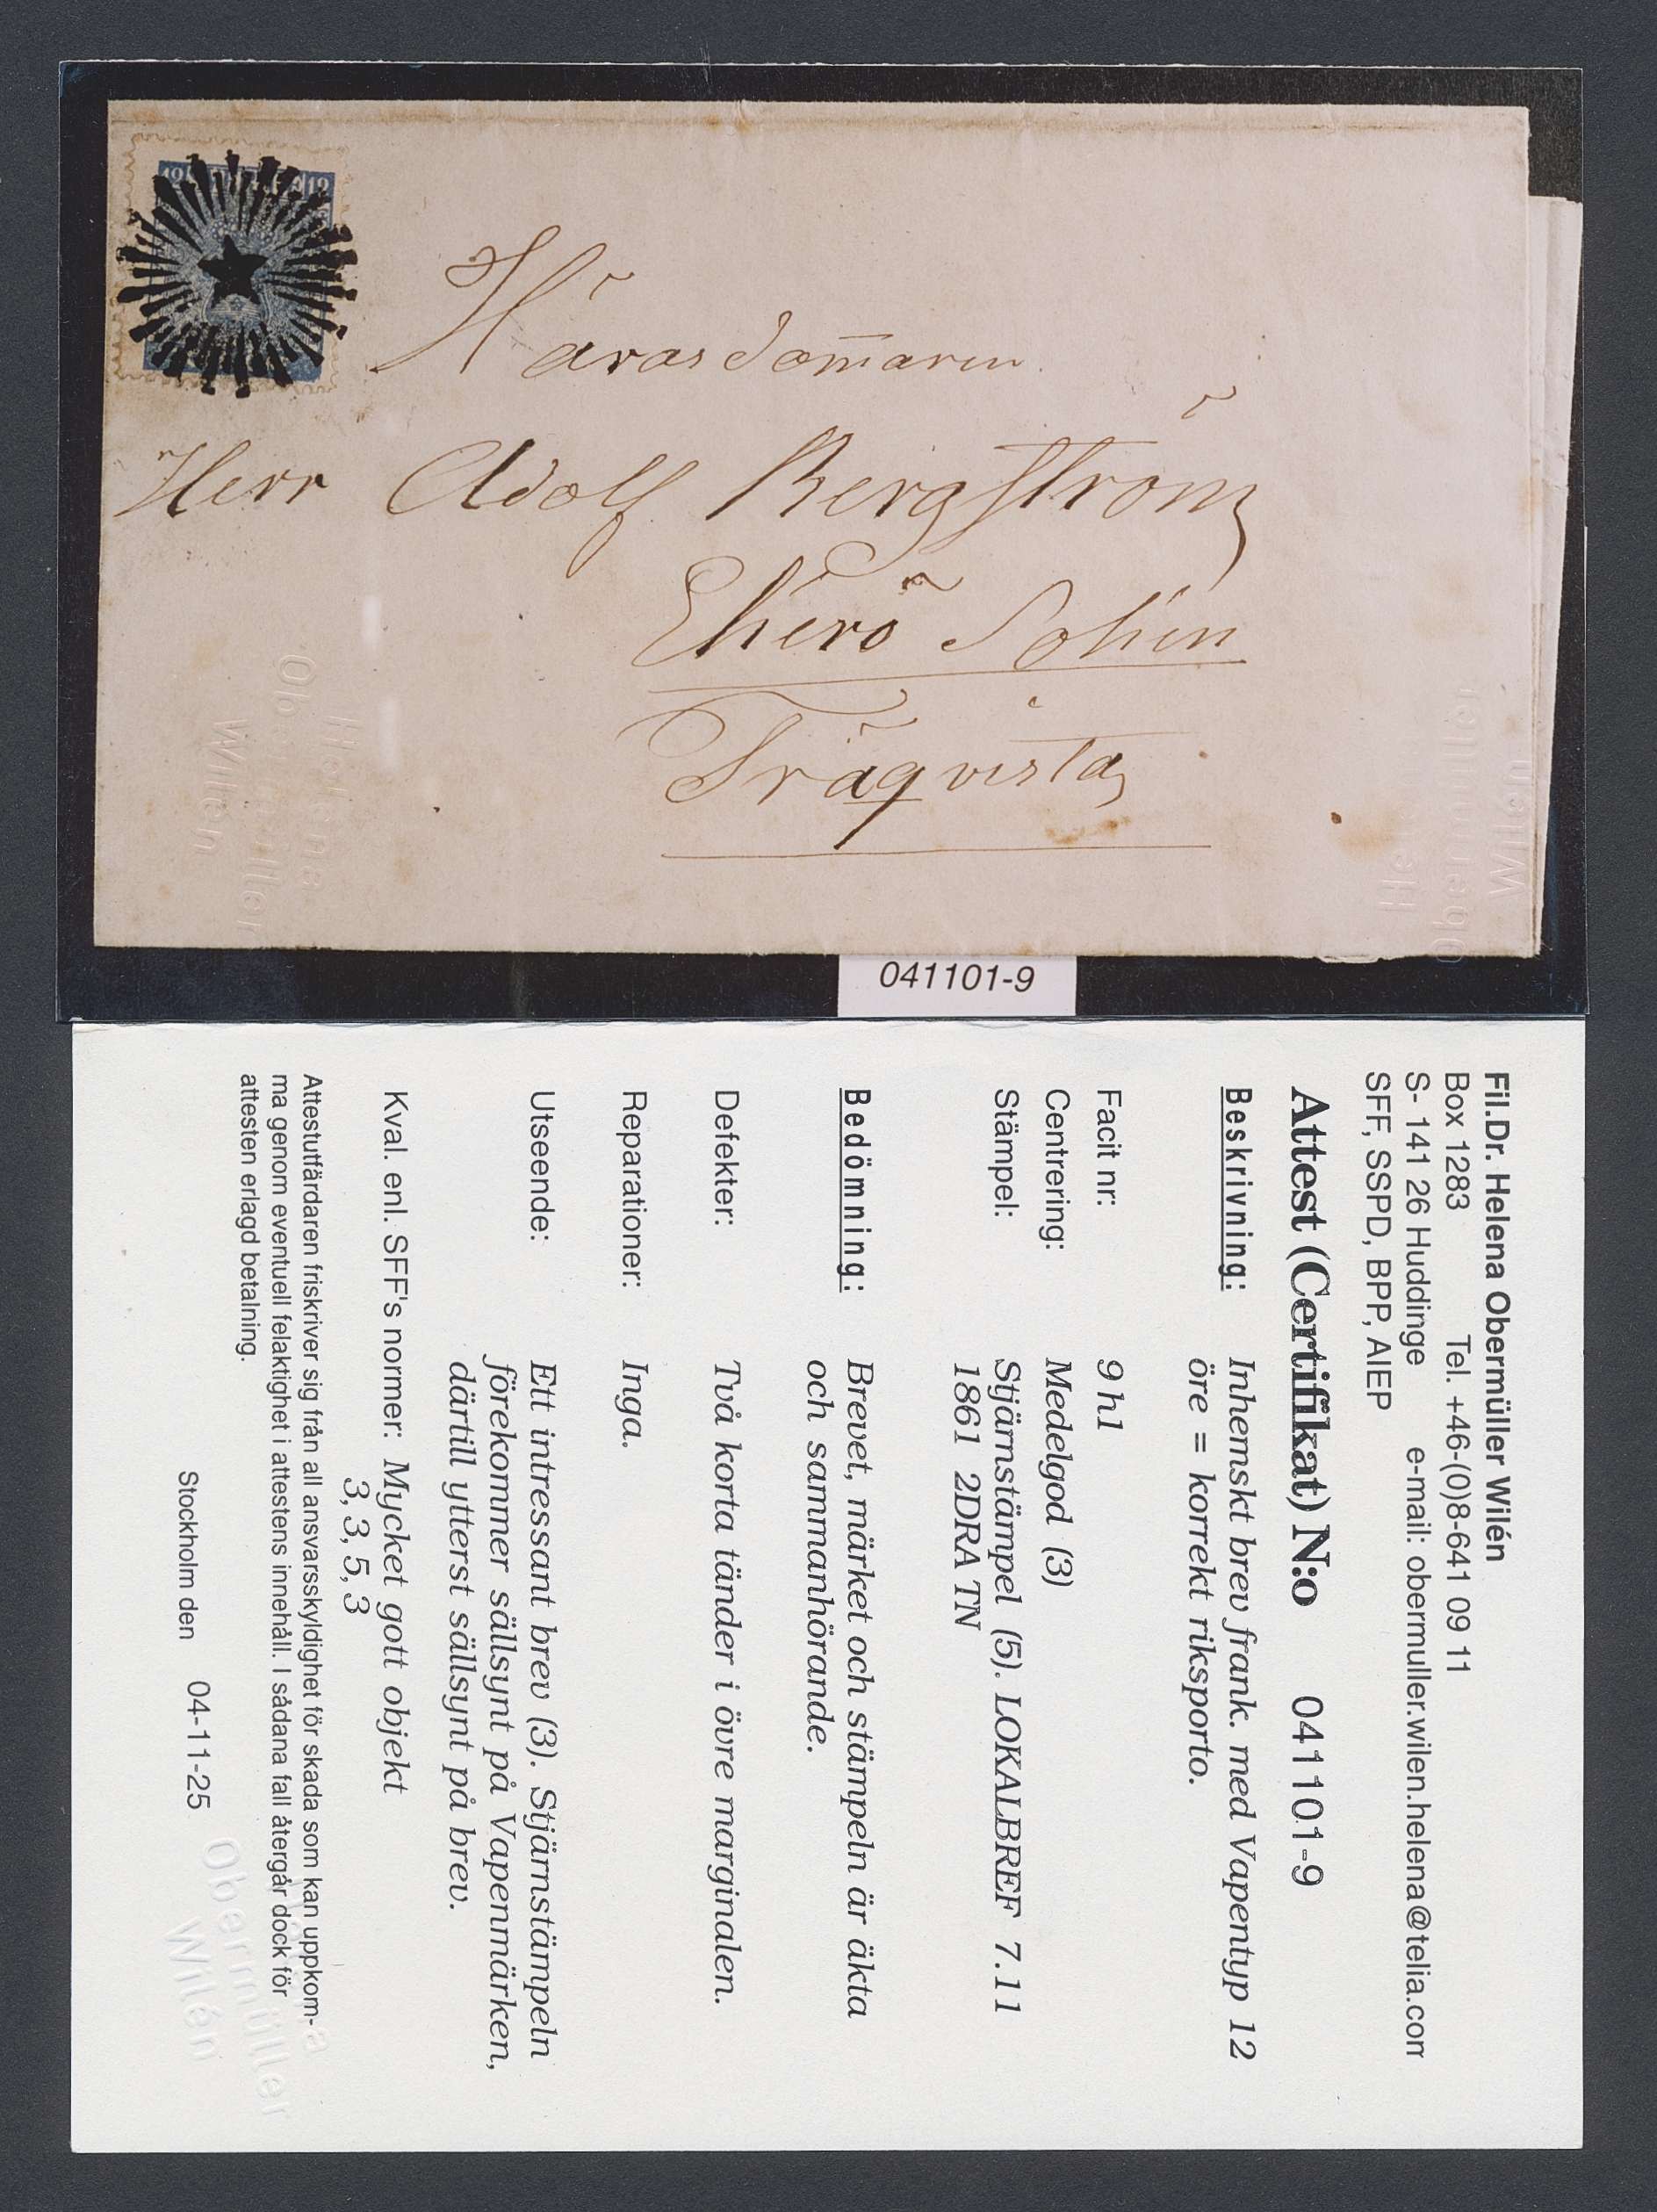 12 12
Häradsdom̅aren
Herr Adolf Bergström
Ekerö Sokn
Träqvista
041101-9
Fil.Dr. Helena Obermüller Wilén
Box 1283 Tel. +46-(0)8-641 09 11
S- 141 26 Huddinge e-mail: obermuller.wilen.helena@telia.com
SFF, SSPD, BPP, AIEP
Attest (Certifikat) N:o 041101-9
Beskrivning: Inhemskt brev frank. med Vapentyp 12
öre = korrekt riksporto.
Facit nr: 9 h1
Centrering: Medelgod (3)
Stämpel: Stjärnstämpel (5). LOKALBREF 7.11
1861 2DRA TN
Bedömning: Brevet, märket och stämpeln är äkta
och sammanhörande.
Defekter: Två korta tänder i övre marginalen.
Reparationer: Inga.
Utseende: Ett intressant brev (3). Stjärnstämpeln
förekommer sällsynt på Vapenmärken,
därtill ytterst sällsynt på brev.
Kval. enl. SFF's normer: Mycket gott objekt
3, 3, 5, 3
Attestutfärdaren friskriver sig från all ansvarsskyldighet för skada som kan uppkom-
ma genom eventuell felaktighet i attestens innehåll. I sådana fall återgår dock för
attesten erlagd betalning.
Stockholm den 04-11-25
Obermüller
Wilén